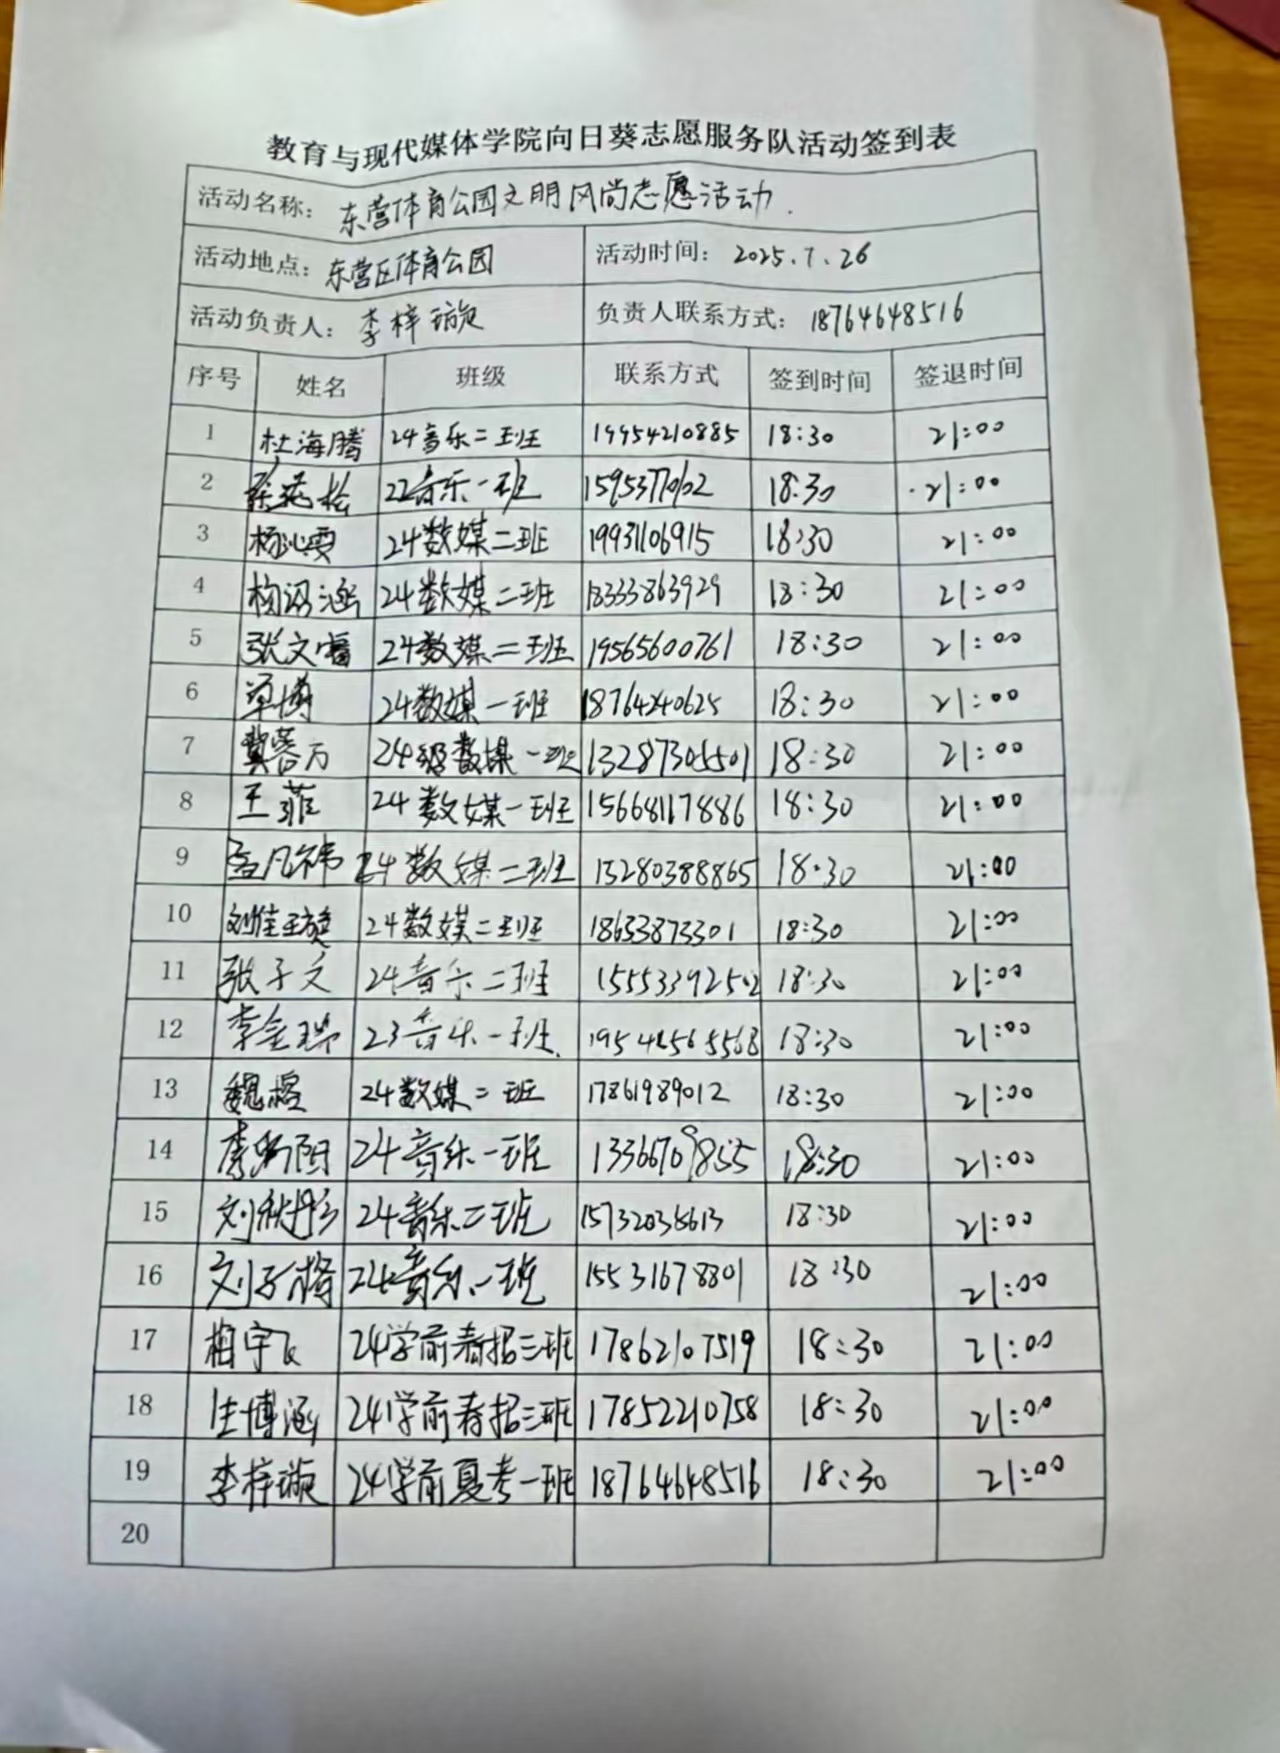 教育与现代媒体学院向日葵志愿服务队活动签到表
活动名称: 东营体育公园文明风尚志愿活动.
活动地点: 东营区体育公园 活动时间: 2025.7.26
活动负责人: 李梓璇 负责人联系方式: 18764648516
序号 姓名 班级 联系方式 签到时间 签退时间
1 杜海腾 24音乐二班 19954210885 18:30 21:00
2 22音乐一班 18:30 21:00
3 24数媒二班 19931106915 18:30 21:00
4 24数媒二班 18333863929 18:30 21:00
5 24数媒二班 19565600761 18:30 21:00
6 单博 24数媒一班 18764240625 18:30 21:00
7 24级数媒一班 13287305501 18:30 21:00
8 王菲 24数媒一班 15668117886 18:30 21:00
9 孟凡祎 24数媒二班 15280388865 18:30 21:00
10 刘佳璇 24数媒二班 18653873301 18:30 21:00
11 张子文 24音乐二班 15553392502 18:30 21:00
12 李金瑞 23音乐一班 18:30 21:00
13 24数媒二班 17861989012 18:30 21:00
14 24音乐一班 13366709855 18:30 21:00
15 24音乐二班 18:30 21:00
16 24音乐一班 15531678801 18:30 21:00
17 24学前春招三班 17862107519 18:30 21:00
18 生博涵 24学前春招三班 17852210758 18:30 21:00
19 李梓璇 24学前夏考一班 18764648516 18:30 21:00
20